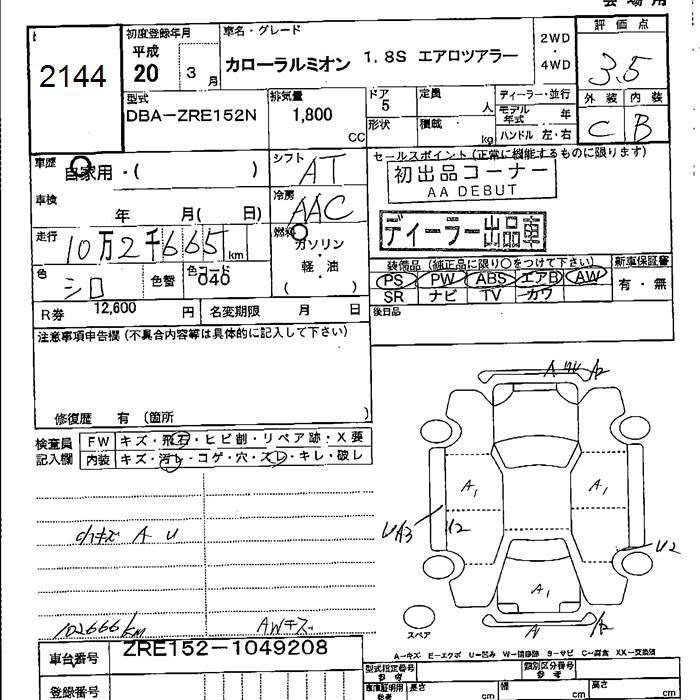 会場用
2144
初度登録年月
平成 20 3 月
車名・グレード
カローラルミオン 1.8S エアロツアラー
2WD ・ 4WD
評価点
3.5
外装 内装
C B
型式
DBA-ZRE152N
排気量
1,800 CC
ドア 5 定員 人
形状 積載 kg
ディーラー・並行
モデル年式 年
ハンドル 左・右
車歴
自家用・( )
シフト AT
車検
年 月( 日)
冷房 AAC
走行
10万2千665 km
燃料
ガソリン
軽・油
( )
色 シロ 色替 色コード 040
R券 12,600 円 名変期限 月 日
セールスポイント (正常に機能するものに限ります)
初出品コーナー
AA DEBUT
ディーラー出品車
装備品 (純正品に限り〇をつけて下さい)
PS PW ABS エアB AW
SR ナビ TV カワ
新車保証書
有・無
後日品
注意事項申告欄 (不具合内容等は具体的に記入して下さい)
修復歴 有 〔箇所 〕
検査員
記入欄
FW キズ・飛石・ヒビ割・リペア跡・X要
内装 キズ・汚レ・コゲ・穴・スレ・キレ・破レ
小キズ A U
102666km
AWキズ
A
A2
A1
A1
UA3
U2
U2
A1
スペア
A
A2
A-キズ E-エクボ U-凹み W-補修跡 S-サビ C-腐食 XX-交換済
車台番号 ZRE152-1049208
登録番号
型式指定番号
参考
類別区分番号
参考
車庫証明用
参考
長さ cm 幅 cm 高さ cm